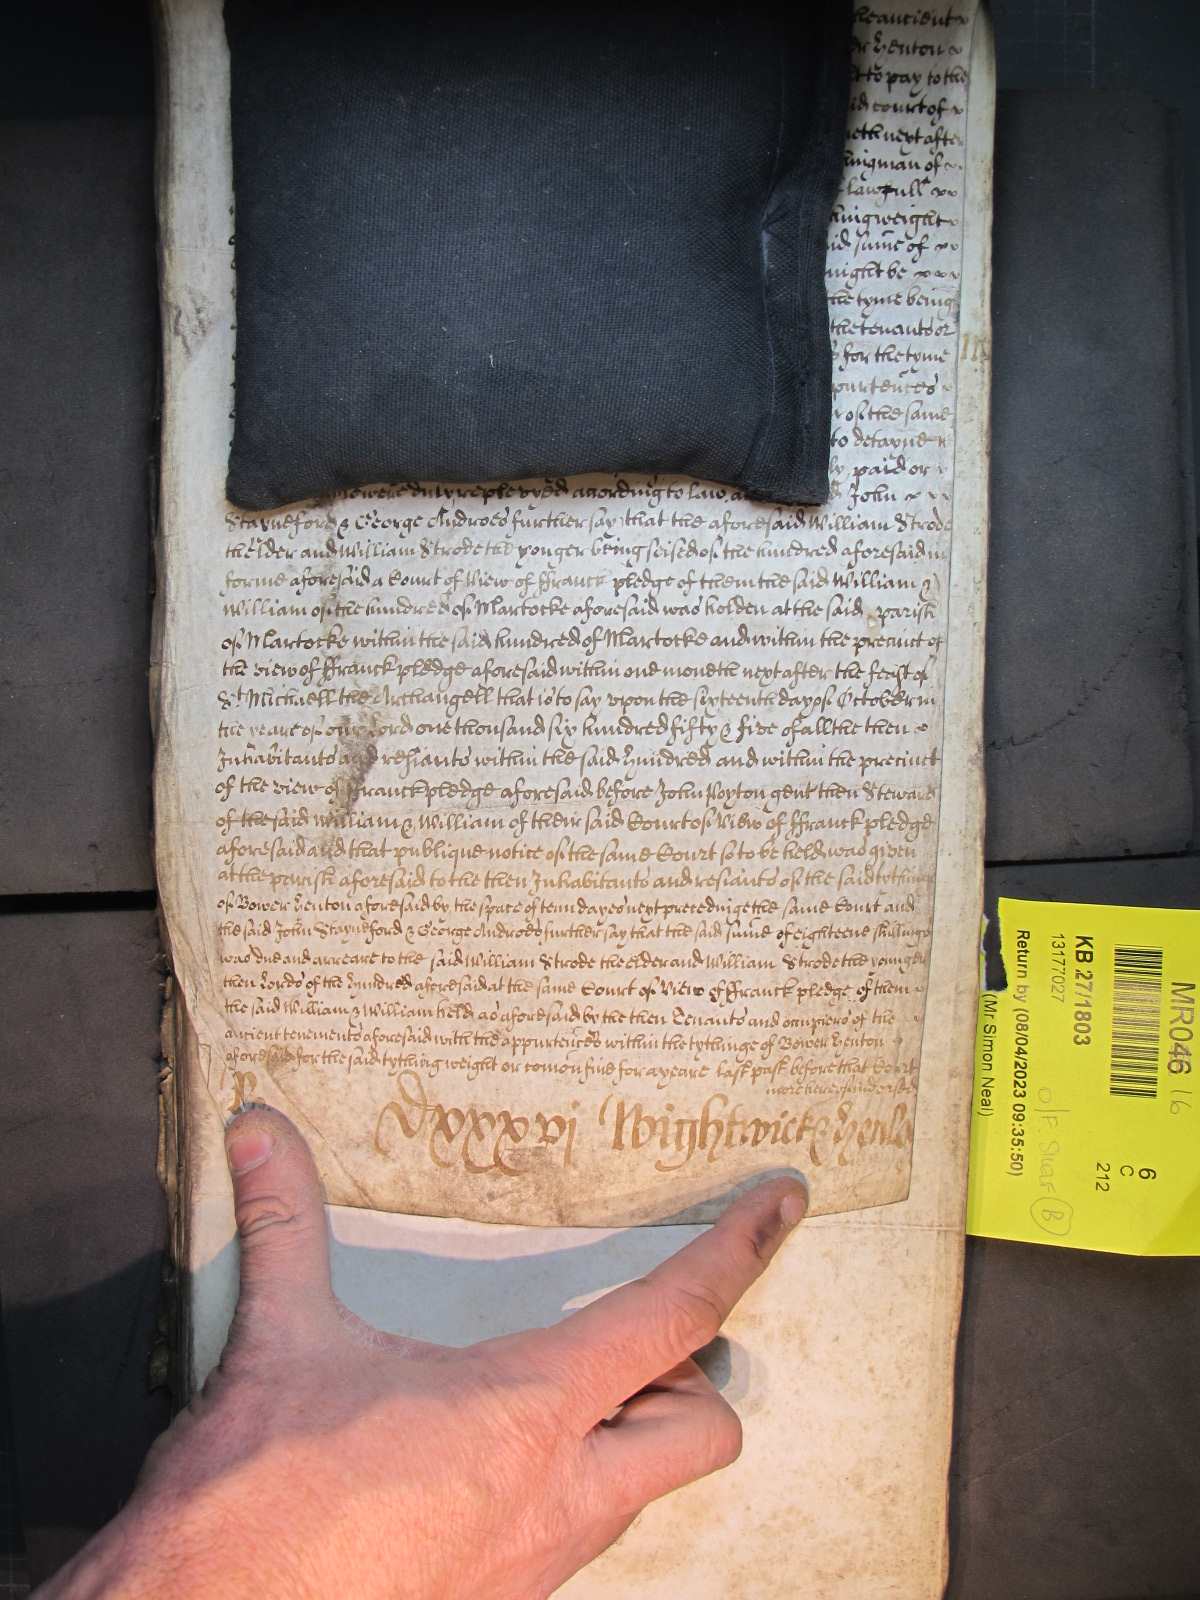 the ancient
er Henton
t to pay to the
id court of
neth next after
hingman of
lawfull
hing weight
aid sume of
might be
the tyme being
the tenants or
s for the tyme
purtences
r of the same
to detayne
ly paid or
were duly replevyed according to law, a d John
Stayneford & George Androes further say that the aforesaid William Strode
the elder and William Strode the yonger being seised of the hundred aforesaid in
forme aforesaid a Court of View of ffranck pledge of them the said William &
William of the hundred of Martocke aforesaid was holden at the said parish
of Martocke within the said hundred of Martocke and within the precinct of
the view of ffranck pledge aforesaid within one moneth next after the feast of
St Michaell the Archangell that is to say vpon the sixteenth day of October in
the yeare of our Lord one thousand six hundred fifty & five of all the then
Inhabitants and resiants within the said hundred and within the precinct
of the view of ffranck pledge aforesaid before John Poyton gent then Steward
of the said William & William of their said Court of View of ffranck pledge
aforesaid and that publique notice of the same Court so to be held was given
at the parish aforesaid to the then Inhabitants and resiants of the said tythinge
of Bower Henton aforesaid by the space of tenn dayes next precedinge the same Court and
the said John Stayneford & George Androes further say that the said sume of eighteene shillings
was due and arreare to the said William Strode the elder and William Strode the younger
then Lords of the hundred aforesaid at the same Court of View of ffranck pledge of them
the said William & William held as aforesaid by the then Tenants and occupiers of the
ancient tenements aforesaid with the appurtences within the tythinge of Bower Henton
aforesaid for the said tything weight or comon fine for a yeare last past before that Court
more
Dxxxvj Wightwick &
MR046 16
KB 27/1803
13177027
Return by (08/04/2023 09:35:50)
(Mr Simon Neal)
6
C
212
B